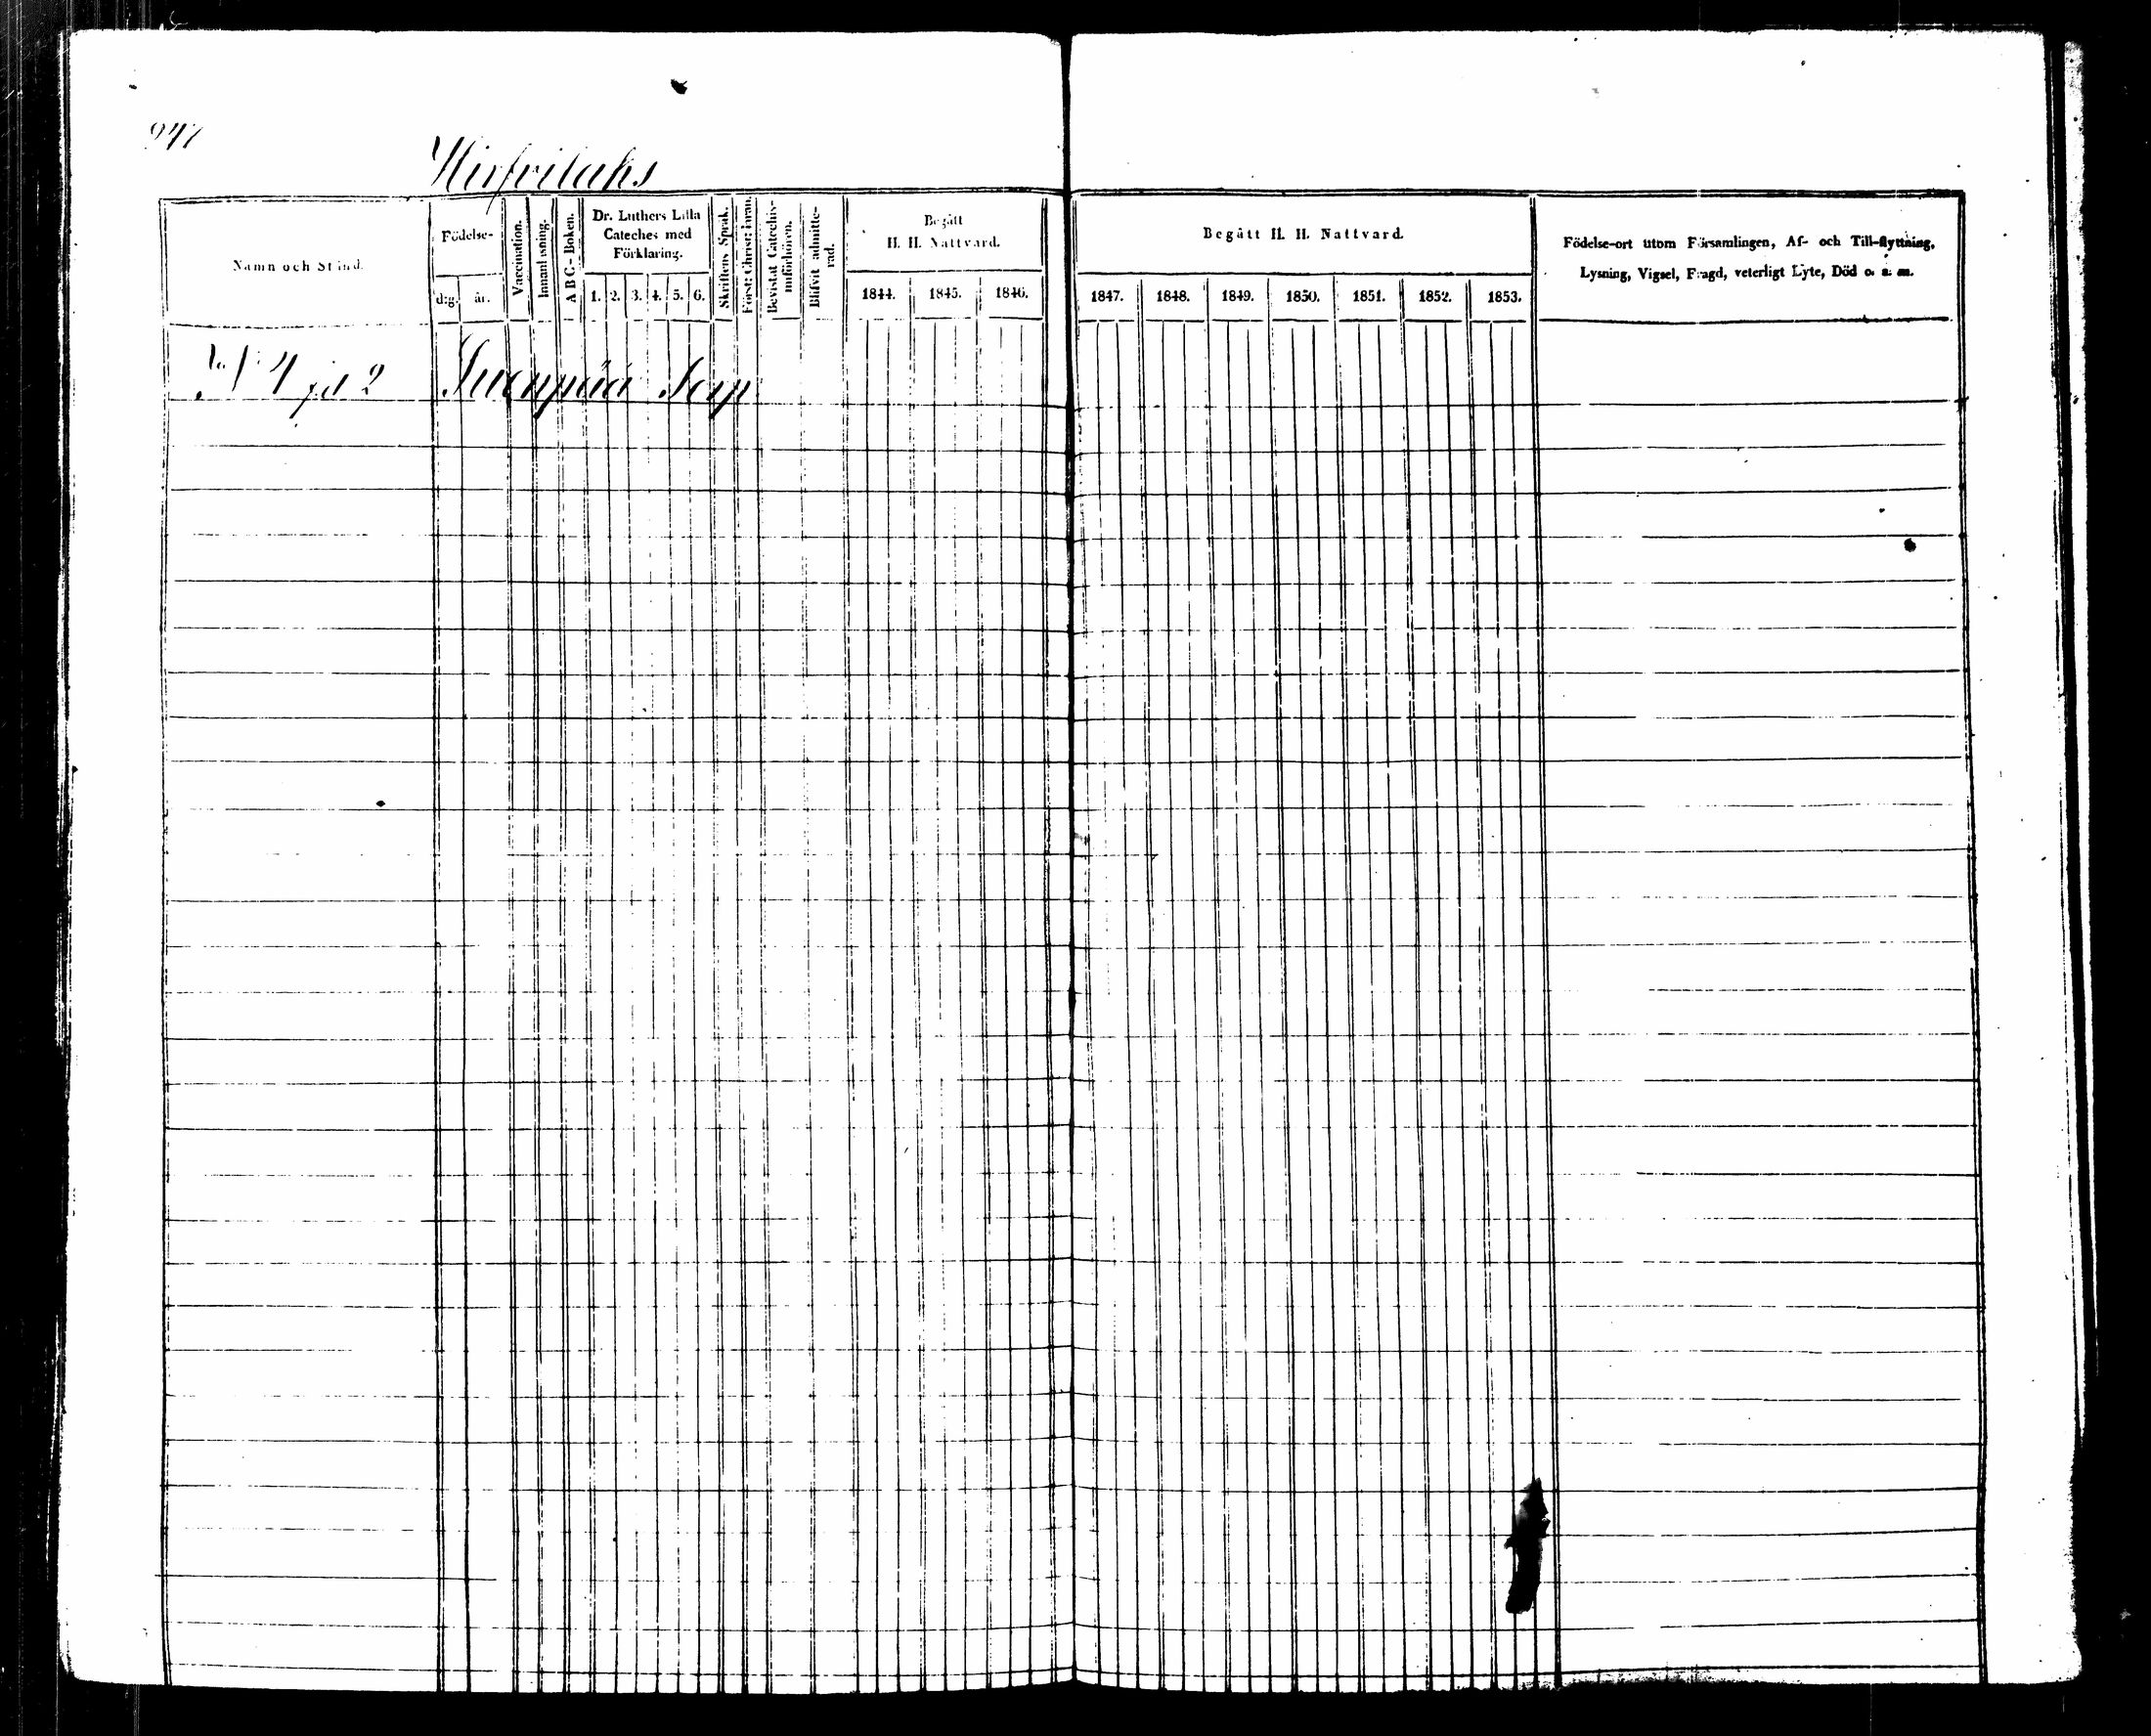 947
Hirfvilaks
Namn och Stånd.
Födelse-
d:g.
år.
Vaccination.
Innanläsning.
A B C - Boken.
Dr. Luthers Lilla
Cateches med
Förklaring.
1. 2. 3. 4. 5. 6.
Skriftens Språk.
Först: Christ: läran.
Bevistat Catechis-
miförhören.
Blifvit admitte-
rad.
Begått
H. H. Nattvard.
1844. 1845. 1846.
Begått H. H. Nattvard.
1847. 1848. 1849. 1850. 1851. 1852. 1853.
Födelse-ort utom Församlingen, Af- och Till-flyttning,
Lysning, Vigsel, Frägd, veterligt Lyte, Död o. s. m.
No 4 2 Torp